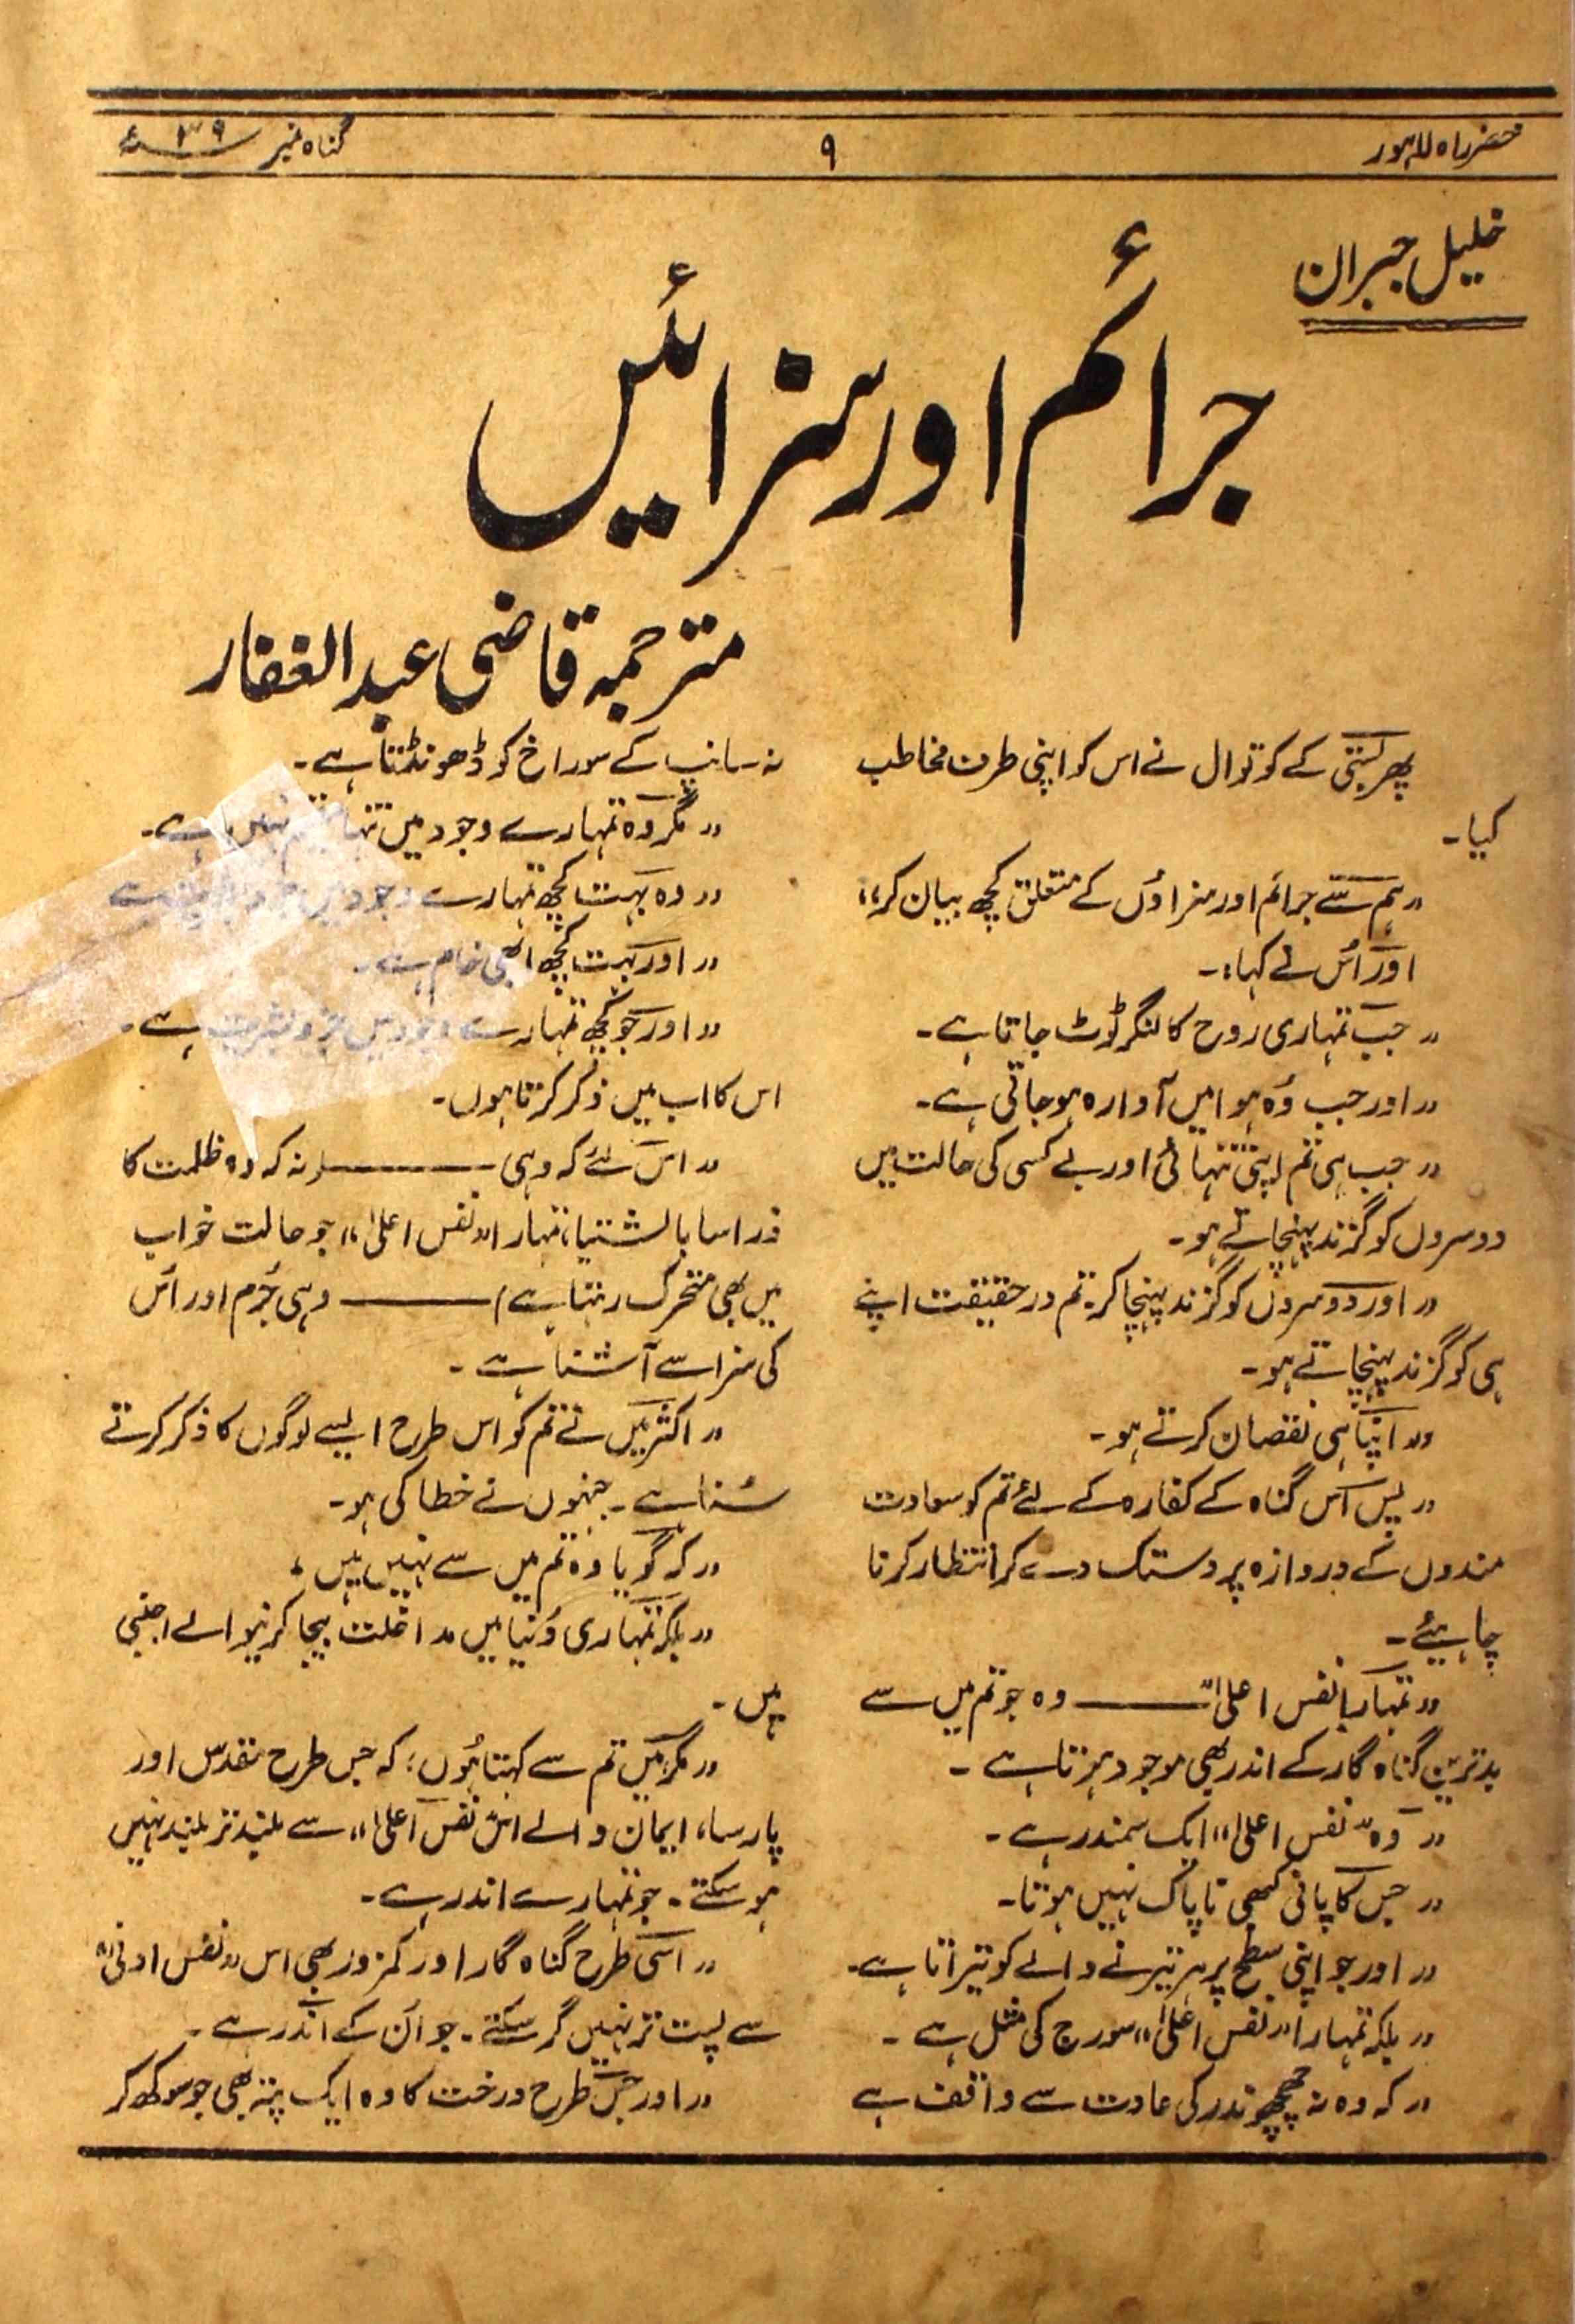 خضر راہ لاہور
۹
گناہ نمبر ۳۹ء
خلیل جبران
جرائم اور سزائیں
مترجمہ قاضی عبدالغفار
پھر بستی کے کوتوال نے اس کو اپنی طرف مخاطب
کیا۔
"ہم سے جرائم اور سزاؤں کے متعلق کچھ بیان کر"
اور اُس نے کہا:۔
"جب تمہاری روح کا لنگر ٹوٹ جاتا ہے۔
"اور جب وُہ ہوا میں آوارہ ہو جاتی ہے۔
"جب ہی تم اپنی تنہائی اور بے کسی کی حالت میں
دوسروں کو گزند پہنچاتے ہو۔
"اور دوسروں کو گزند پہنچا کر تم درحقیقت اپنے
ہی کو گزند پہنچاتے ہو۔
"اپنا ہی نقصان کرتے ہو۔
"پس اس گناہ کے کفارہ کے لئے تم کو سعادت
مندوں کے دروازہ پر دستک دے کر انتظار کرنا
چاہیئے۔
"تمہارا نفس اعلیٰ" ــــــ وہ جو تم میں سے
بدترین گناہ گار کے اندر بھی موجود ہوتا ہے۔
"وہ "نفس اعلیٰ" ایک سمندر ہے۔
"جس کا پانی کبھی ناپاک نہیں ہوتا۔
"اور جو اپنی سطح پر ہر تیرنے والے کو تیراتا ہے۔
"بلکہ تمہارا "نفس اعلیٰ" سورج کی مثل ہے۔
"کہ وہ نہ چھچھوندر کی عادت سے واقف ہے
نہ سانپ کے سوراخ کو ڈھونڈتا ہے۔
"مگر وہ تمہارے وجود میں تنہا نہیں ہے۔
"وہ بہت کچھ تمہارے وجود میں
"اور بہت کچھ ابھی خام ہے۔
"اور جو کچھ تمہارے وجود میں جزو بشریت ہے۔
اس کا اب میں ذکر کرتا ہوں۔
"اس لئے کہ وہی ــــــ (نہ کہ وہ ظلمت کا
ذرا سا بالشتیا، تمہارا "نفس اعلیٰ" جو حالت خواب
میں بھی متحرک رہتا ہے) ــــــ وہی جُرم اور اُس
کی سزا سے آشنا ہے۔
"اکثر میں نے تم کو اس طرح ایسے لوگوں کا ذکر کرتے
سُنا ہے۔ جنہوں نے خطا کی ہو۔
"کہ گویا وہ تم میں سے نہیں ہیں،
"بلکہ تمہاری دُنیا میں مداخلت بیجا کرنیوالے اجنبی
ہیں۔
"مگر میں تم سے کہتا ہُوں؛ کہ جس طرح مقدس اور
پارسا، ایمان والے اس "نفس اعلیٰ" سے بلند تر بلند نہیں
ہو سکتے۔ جو تمہارے اندر ہے۔
"اسی طرح گناہ گار اور کمزور بھی اس "نفس ادنیٰ"
سے پست تر نہیں گر سکتے۔ جو اُن کے اندر ہے۔
"اور جس طرح درخت کا وہ ایک پتہ بھی جو سوکھ کر